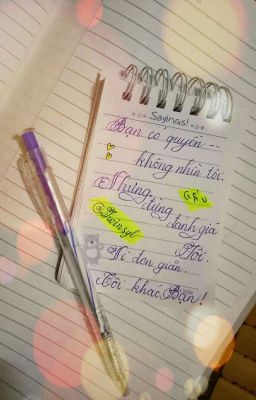 Sayings!
Bạn có quyền --
không nhìn tôi.
GẤU
Nhưng đừng đánh giá
Tôi.
Vì đơn giản.
Tôi khác Bạn!